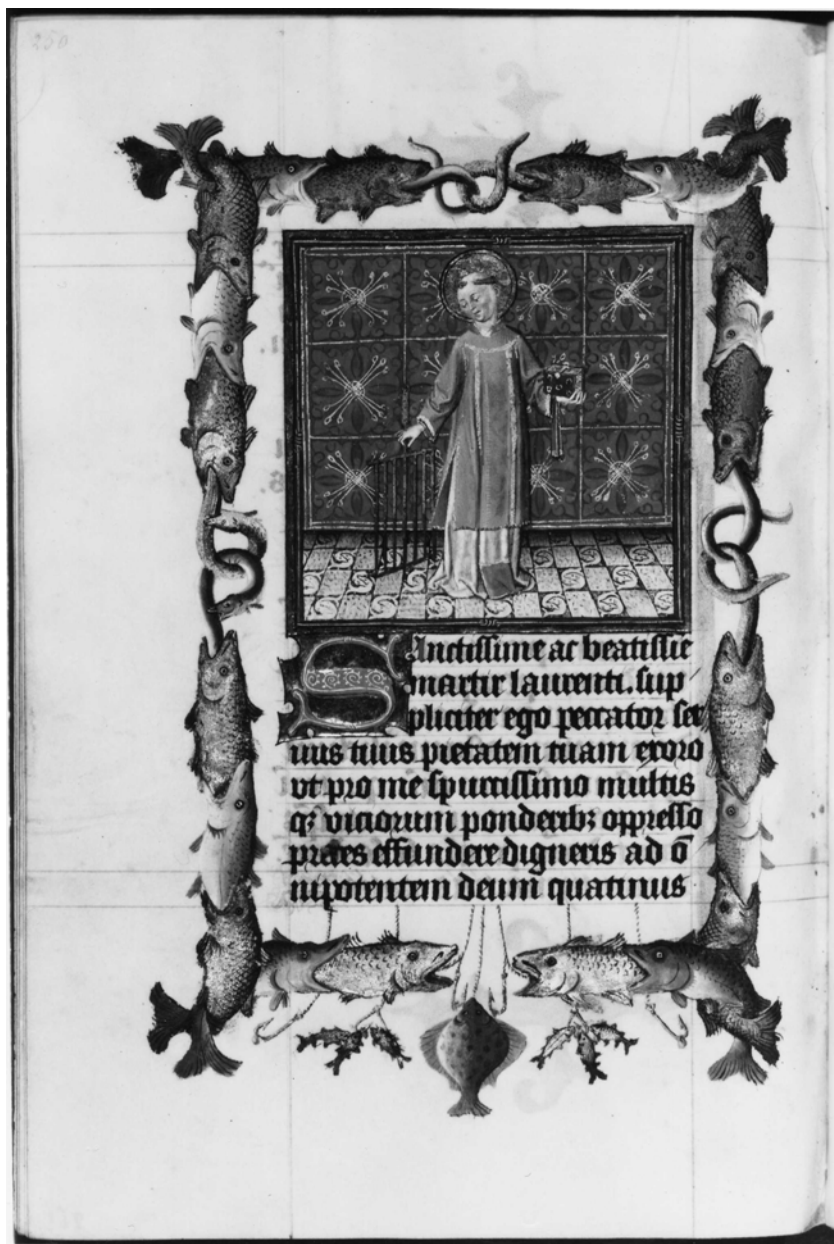 250
Sanctissime ac beatissie
martir laurenti. sup
pliciter ego peccator ser
uus tuus pietatem tuam exoro
vt pro me spurcissimo multis
qꝫ viciorum ponderibꝫ oppresso
preces effundere digneris ad õ
nipotentem deum quatinus